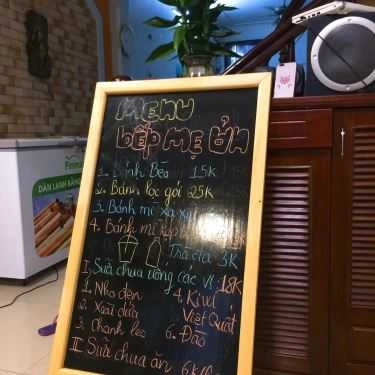 MENU
BẾP MẸ ỦN
1. Bánh Bèo 15K
2. Bánh lọc gói 25K
3. Bánh mì xá xíu
4. Bánh mì
Trà đá 3K
I. Sữa chua uống các vị 18K
1. Nho đen
4. Kiwi
2. Xoài dứa
5. Việt Quất
3. Chanh leo
6. Đào
II. Sữa chua ăn 6K
DÀN LẠNH BẰNG